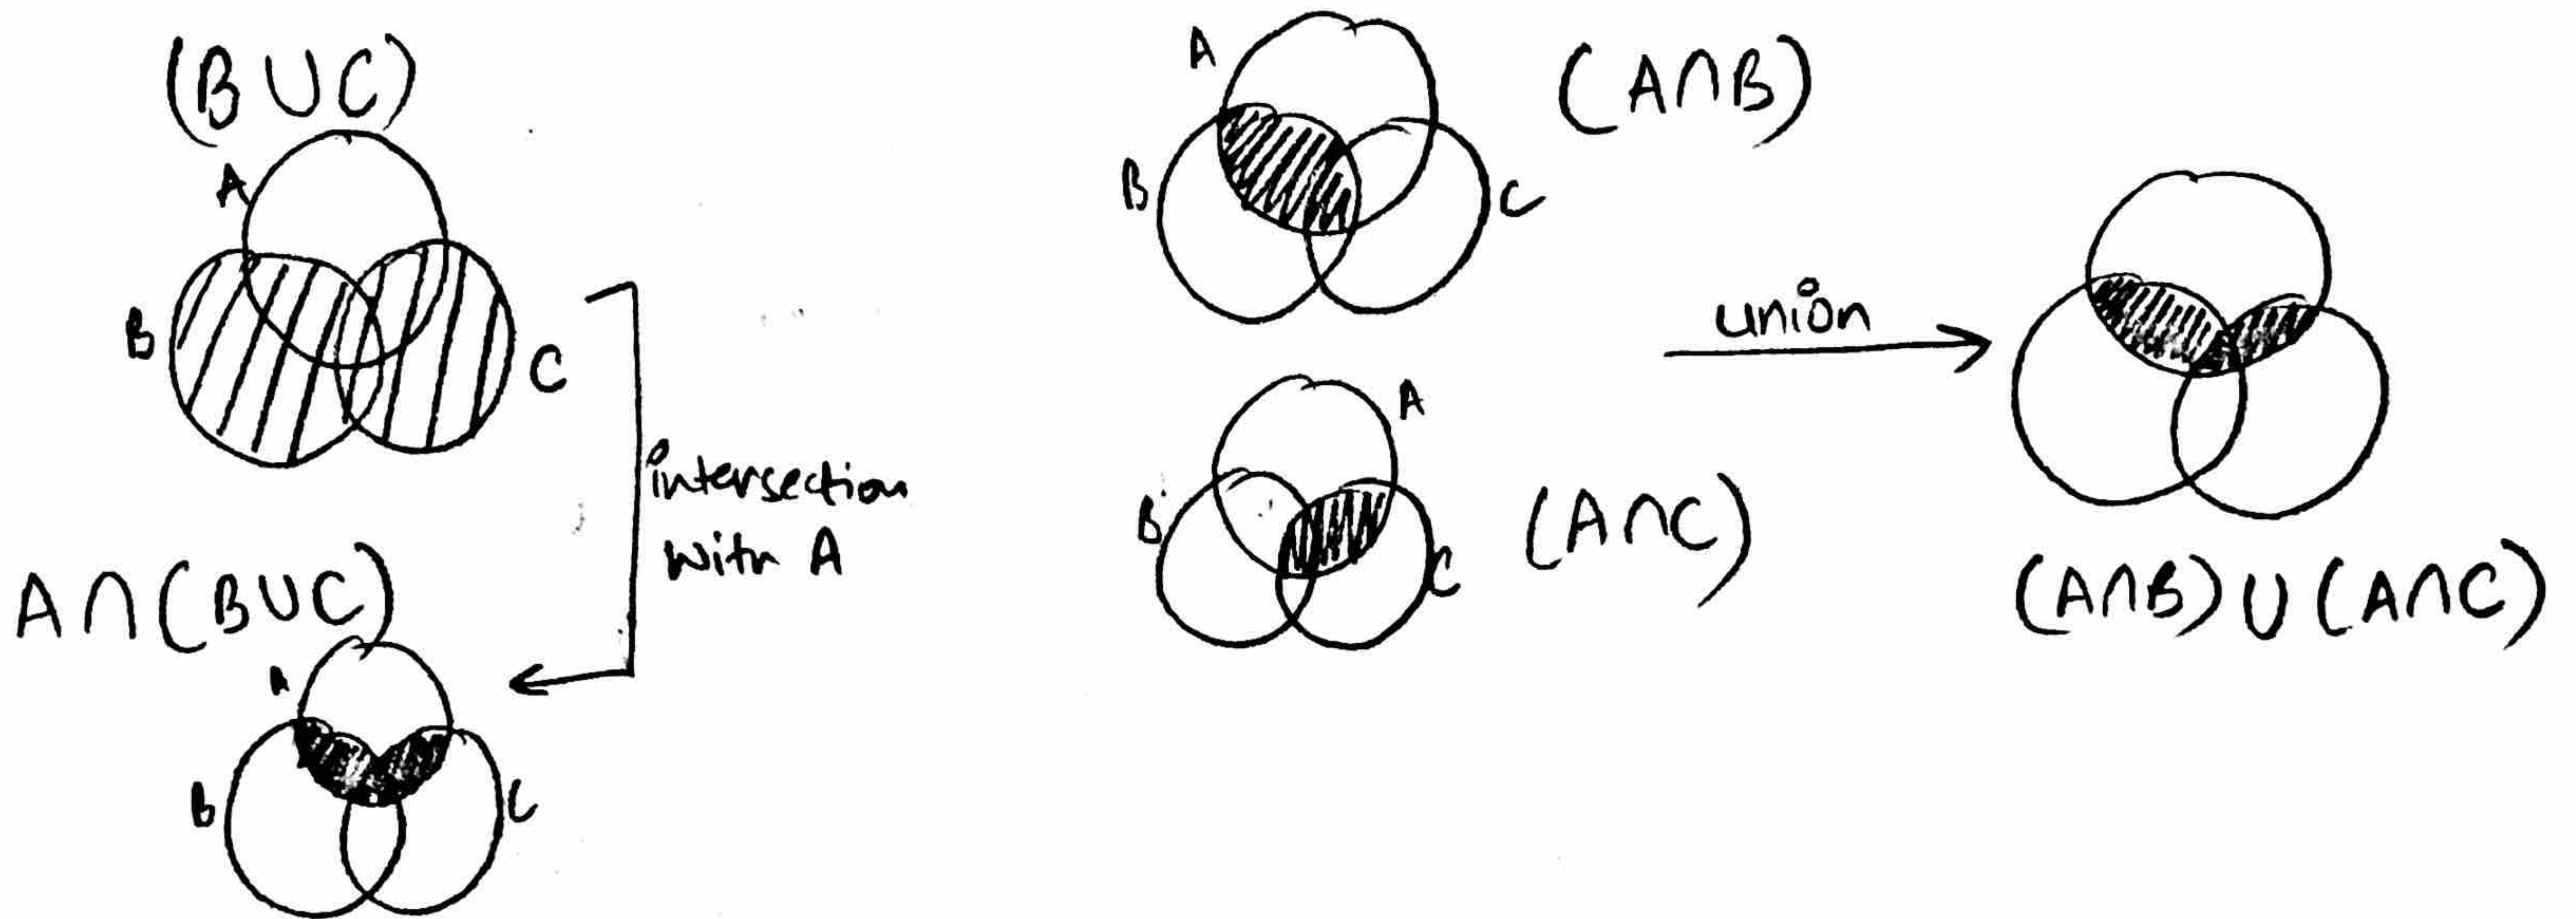 (B∪C)
A
B
C
intersection
with A
A∩(B∪C)
A
B
C
A
(A∩B)
B
C
A
B
C
(A∩C)
union
(A∩B)∪(A∩C)